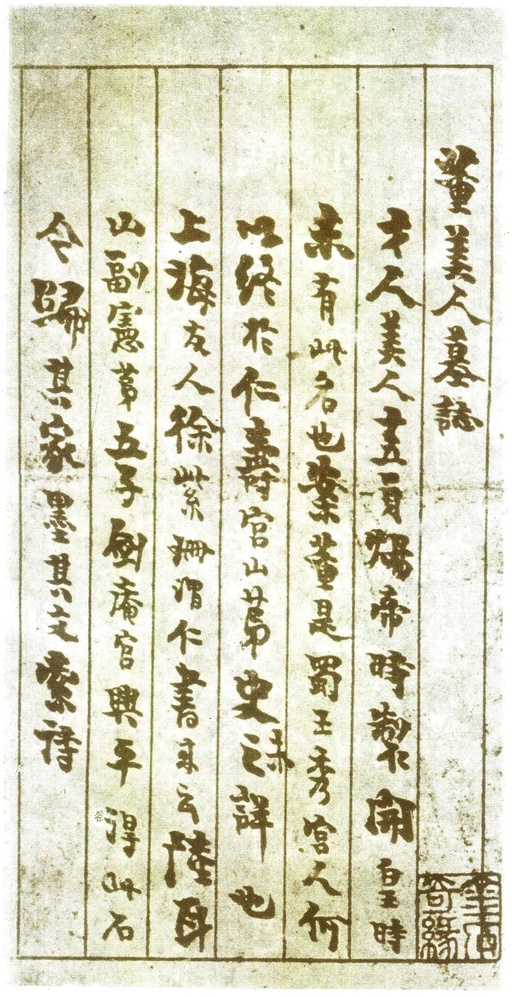 董美人墓誌
才人美人十五員煬帝時製開皇時
未有此名也案董是蜀王秀宮人何
以終於仁壽宮山苐史未之詳也
上海友人徐紫珊渭仁書來云陸耳
山副憲苐五子劍庵官興平得此石
今歸其家墨其文索詩
奇緣